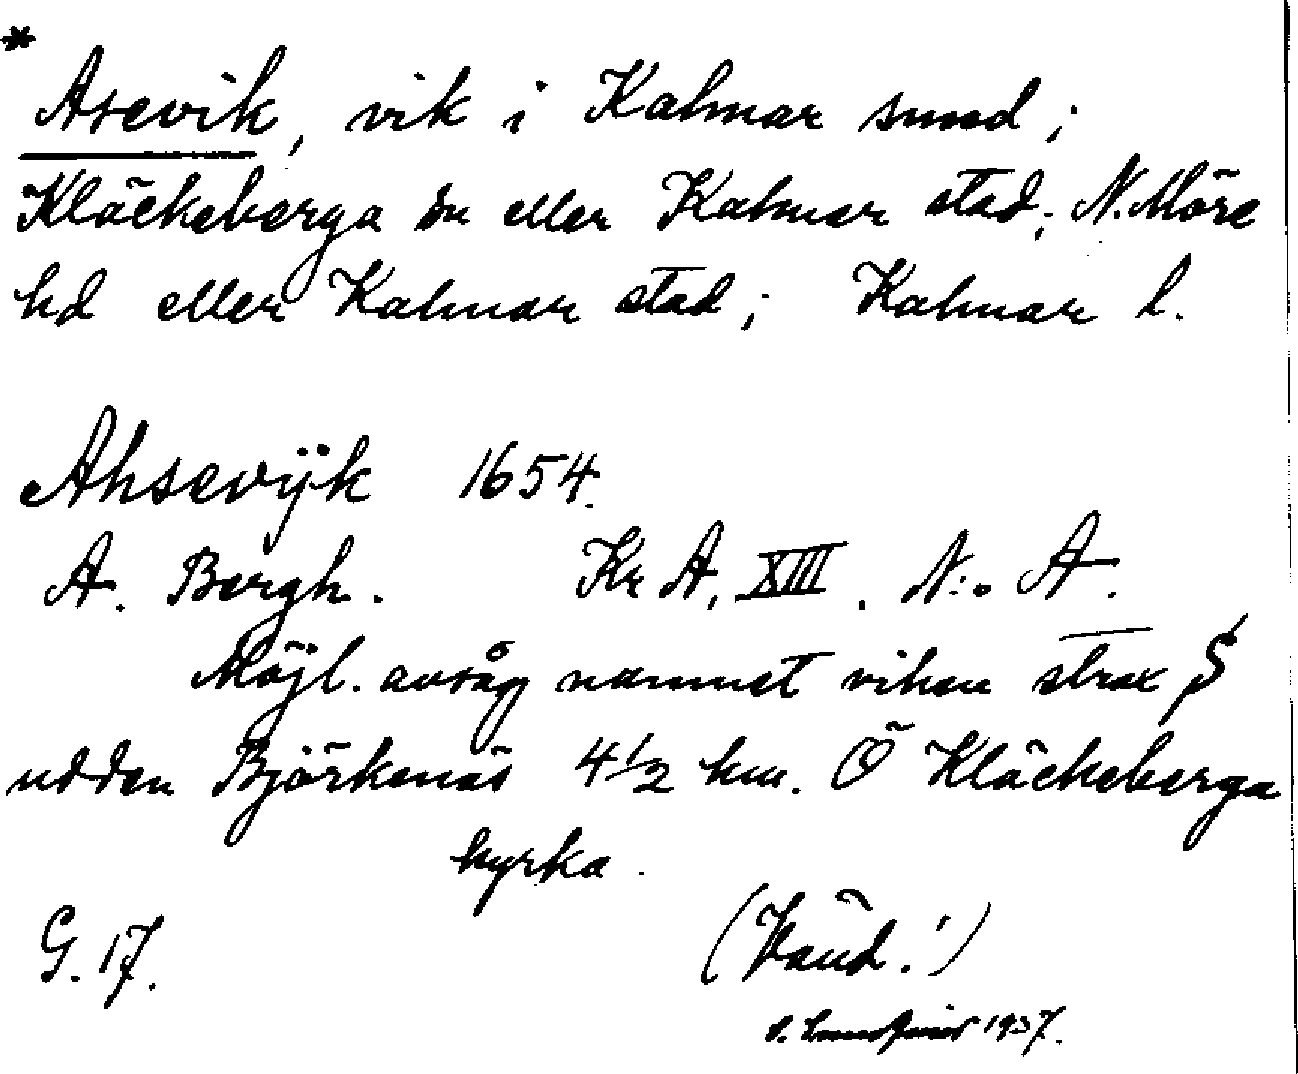 *
Asevik, vik i Kalmar sund;
Kläckeberga sn eller Kalmar stad; N. Möre
hd eller Kalmar stad; Kalmar l.
Ahsevijk 1654.
A. Bergh. Kr A, XIII. N:o A.
Möjl. avsåg namnet viken strax S
udden Björkenäs 4 1/2 km. Ö Kläckeberga
kyrka.
G. 17.
(Vänd!)
1937.